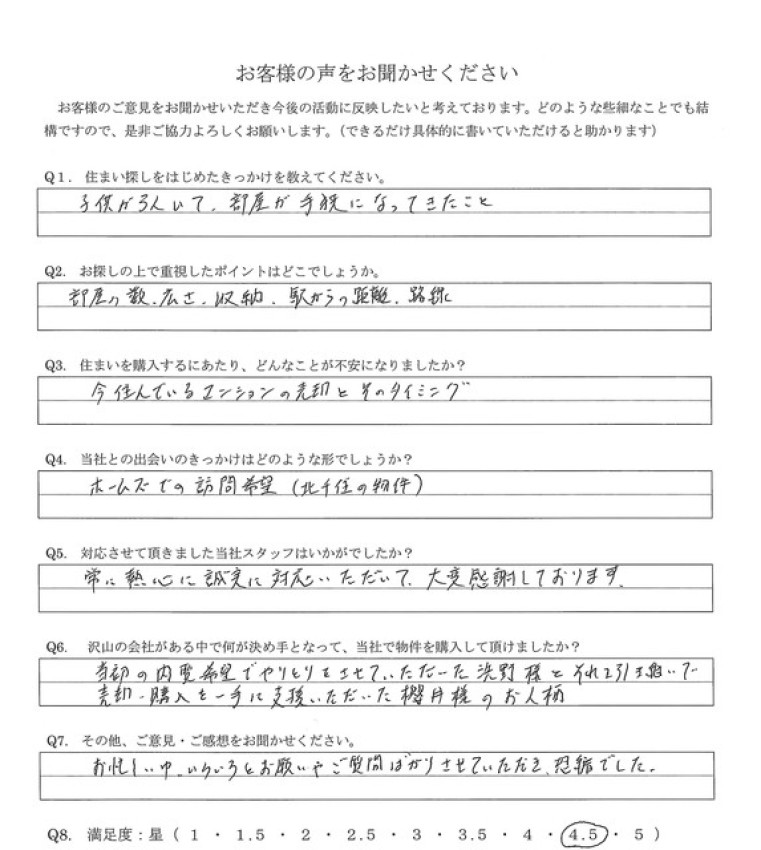 お客様の声をお聞かせください
お客様のご意見をお聞かせいただき今後の活動に反映したいと考えております。どのような些細なことでも結
構ですので、是非ご協力よろしくお願いします。（できるだけ具体的に書いていただけると助かります）
Q1. 住まい探しをはじめたきっかけを教えてください。
子供が3人いて、部屋が手狭になってきたこと
Q2. お探しの上で重視したポイントはどこでしょうか。
部屋の数、広さ、収納、駅からの距離、路線
Q3. 住まいを購入するにあたり、どんなことが不安になりましたか？
今住んでいるマンションの売却とそのタイミング
Q4. 当社との出会いのきっかけはどのような形でしょうか？
ホームズでの訪問希望（北千住の物件）
Q5. 対応させて頂きました当社スタッフはいかがでしたか？
常に熱心に誠実に対応いただいて、大変感謝しております。
Q6. 沢山の会社がある中で何が決め手となって、当社で物件を購入して頂けましたか？
当初の内覧希望でやりとりをさせていただいた浜野様とそれを引き継いで
売却・購入を一手に支援いただいた櫻井様のお人柄
Q7. その他、ご意見・ご感想をお聞かせください。
お忙しい中、いろいろとお願いやご質問ばかりさせていただき、恐縮でした。
Q8. 満足度：星（ 1 ・ 1.5 ・ 2 ・ 2.5 ・ 3 ・ 3.5 ・ 4 ・ 4.5 ・ 5 ）